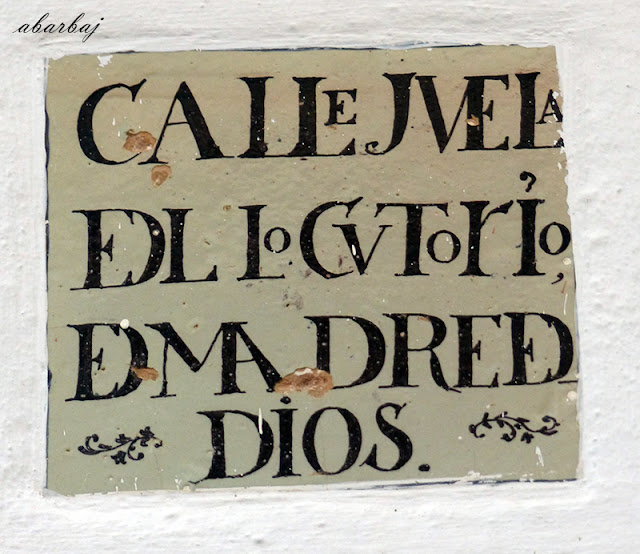 abarbaj
CALLEJVELA
DEL LOCVTORIO,
DE MADRE DE
DIOS.